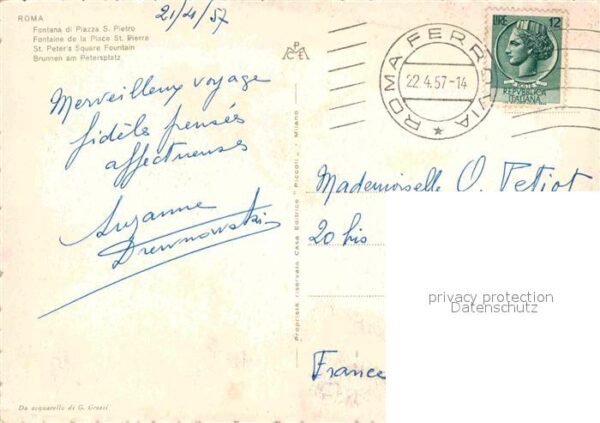 ROMA
Fontana di Piazza S. Pietro
Fontaine de la Place St. Pierre
St. Peter's Square Fountain
Brunnen am Petersplatz
21/4/57
Merveilleux voyage
fidèles pensées
affectueuses
Suzanne
Drewnowski
Da acquarello di G. Grossi
Proprietà riservata Casa Editrice "Piccoli" - Milano
ROMA FERROVIA
22.4.57-14
LIRE 12
REPVBBLICA
ITALIANA
Mademoiselle O. Petiot
20 bis
France
privacy protection
Datenschutz